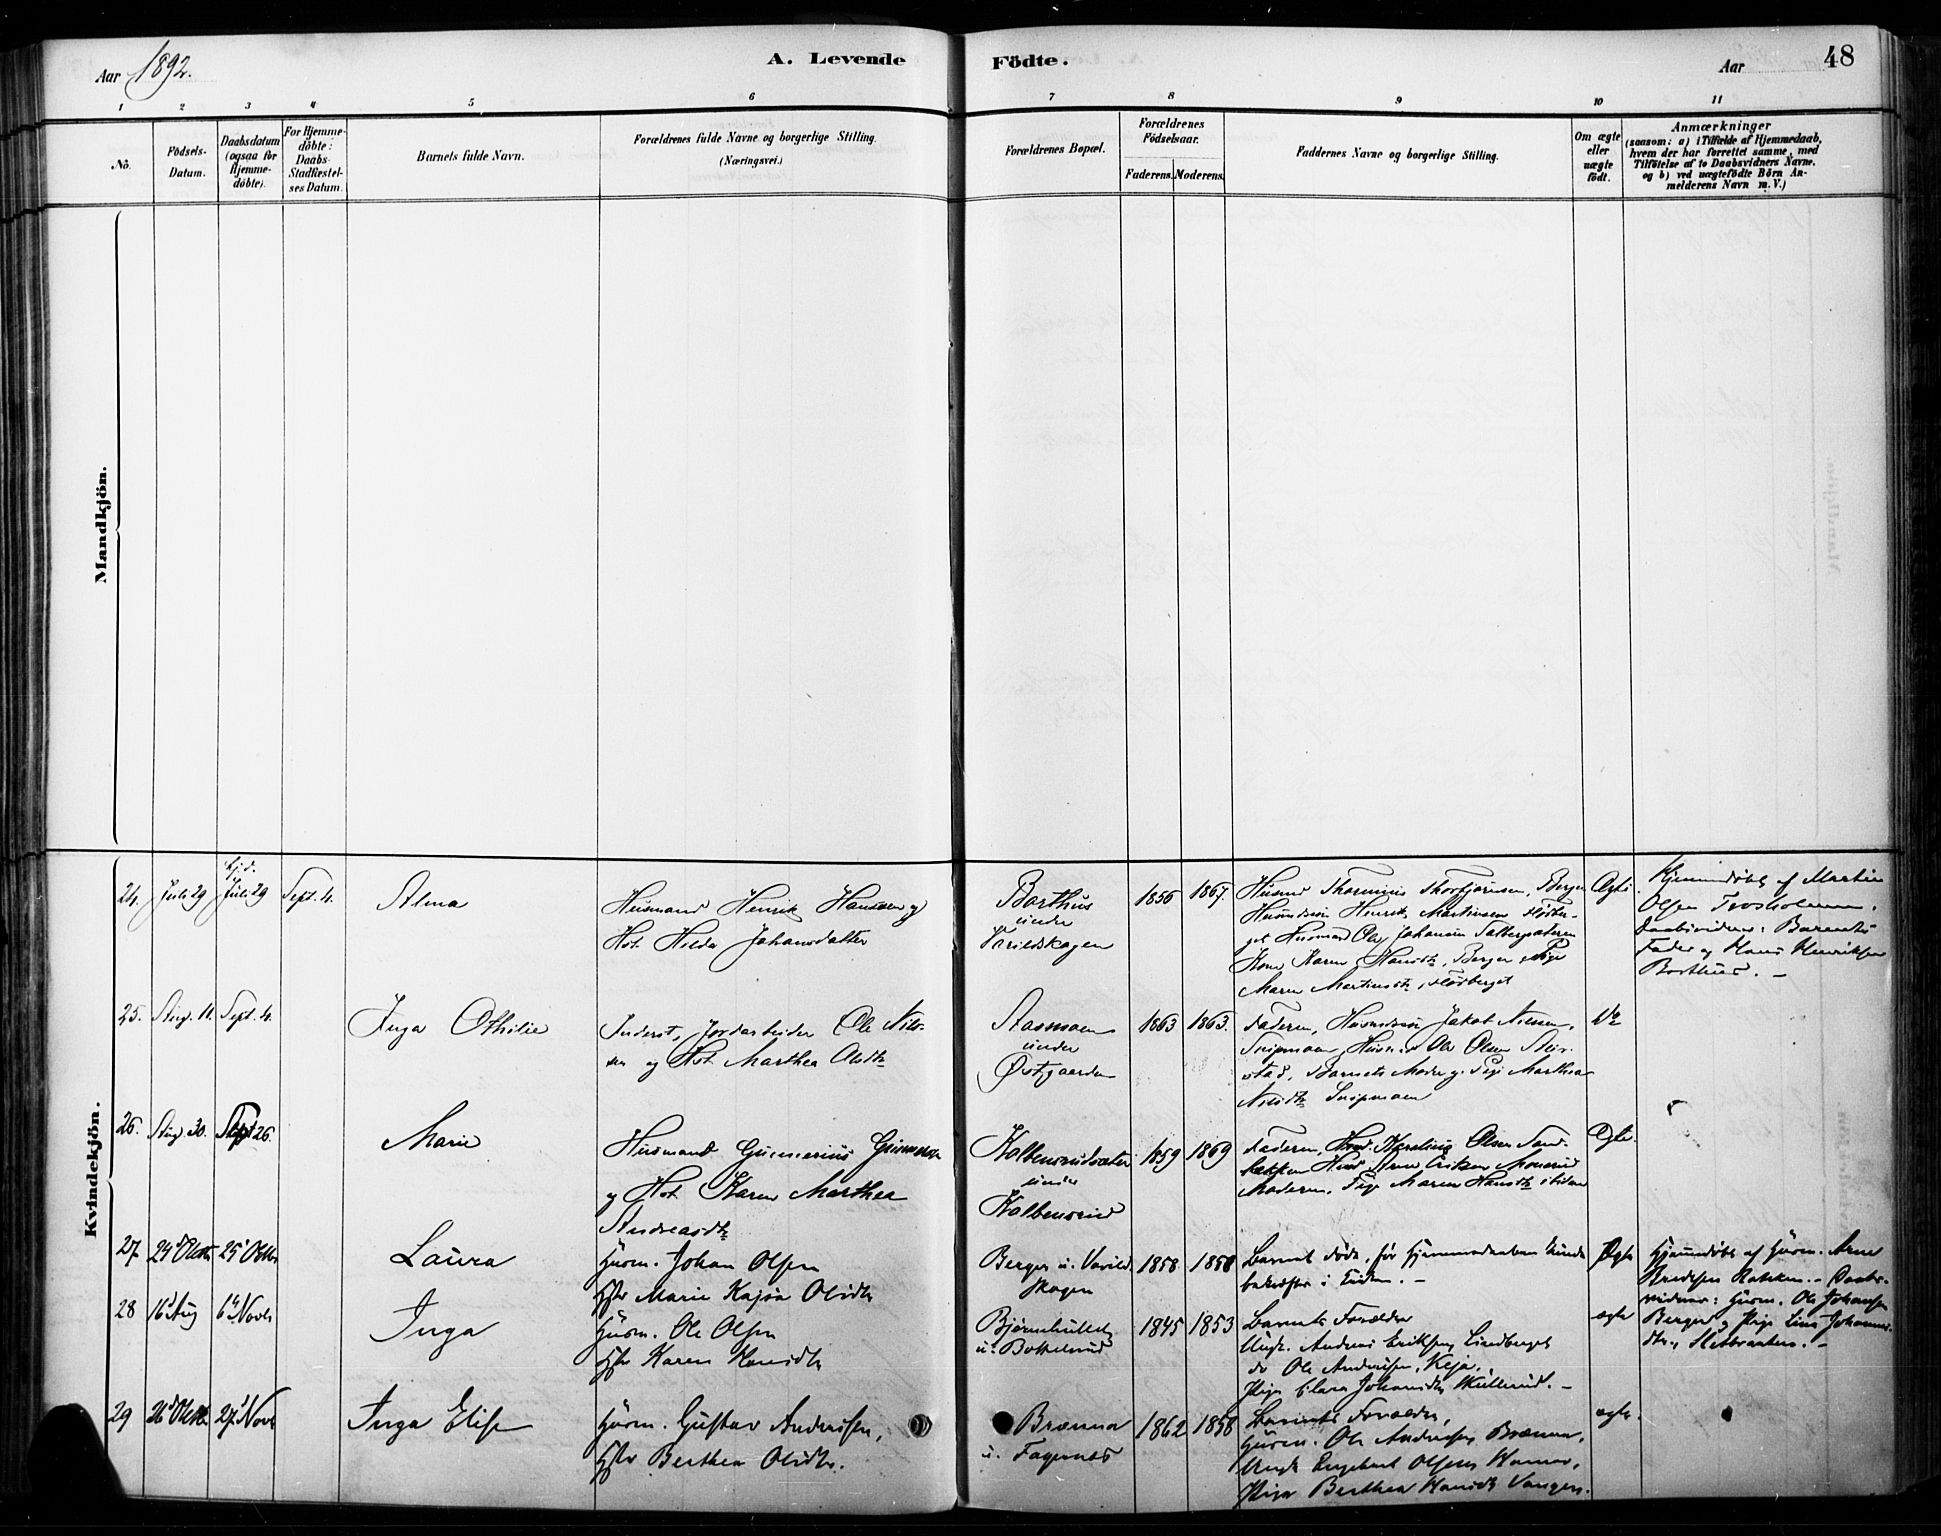 Aar 1892.
A. Levende
Födte.
Aar
48
1
2
3
4
5
6
7
8
9
10
11
No.
Födsels-
Datum.
Daabsdatum
(ogsaa for
Hjemme-
döbte).
For Hjemme-
döbte:
Daabs-
Stadfæstel-
ses Datum.
Barnets fulde Navn.
Forældrenes fulde Navne og borgerlige Stilling.
(Næringsvei.)
Forældrenes Bopæl.
Forældrenes
Födselsaar.
Faderens.
Moderens.
Faddernes Navne og borgerlige Stilling.
Om ægte
eller
uægte
födt.
Anmærkninger
(saasom: a) i Tilfælde af Hjemmedaab,
hvem der har forrettet samme, med
Tilföielse af to Daabsvidners Navne,
og b) ved uægtefödte Börn An-
melderens Navn m. V.)
Mandkjön.
Kvindekjön.
24.
Juli 29
hj.d.
Juli 29
Sept. 4.
Alma
Husmand Henrik Hansen og
Hst. Hilda Johansdatter
Borthus
under
Varildskogen
1856
1867.
Berger
Husmdsøn Henrik Martinsen Fløtber-
get Husmand Ole Johansen
Kone Karen Hansdtr, Berger, Pige
Maren Martinsdtr, Fløtberget
Ægte.
Hjemmdøbt af Martin
Olsen
Daabsvidner: Barnets
Fader og Hans Henriksen
Borthus. –
25.
Aug. 11.
Sept. 4.
Inga Othilie
Inderst, Jordarbeider Ole Nils-
sen og Hst. Marthea Olsdtr
Aasmoen
under
Østgaarden
1863
1863.
Faderen, Husmdsøn Jakob Nilssen,
Husmd Ole Olsen
stad, Barnets Moder og Pige Marthea
Nilsdtr
26.
Aug. 30.
Sept 26.
Marie
Husmand Gunnerius Gunnersen
og Hst. Karen Marthea
Andreasdtr
Kolbensrudsæter
under
Kolbensrud
1859
1869
Faderen, Husmd. Olsen Sand-
bakken Husmd Arne Eriksen
Moderen. Pige Maren Hansdtr ibidem
Ægte.
27
24d Oktbr
25d Oktbr
Laura
Husm. Johan Olsen
Hstr Marie Kajsa Olsdtr
Berger u. Varild
skogen
1858
1858
Barnet døde, før Hjemmedaaben kunde
bekræftes i Kirken. –
Ægte
Hjemmdøbt af Husm. Arne
Bakken. – Daabs-
vidner: Husm. Ole Johansen
Berger og Pige Lina Johannes-
dtr,
28
16d Aug
6d Novbr
Inga
Husm. Ole Olsen
Hstr Karen Hansdtr
Bjørnehullet
u. Bottelsrud
1845
1853
Barnets Forældre
Ungk. Andreas Eriksen, Lindberget
do Ole Andersen, Keja,
Pige Clara Johansdtr –
ægte
29
26d Oktbr
27d Novbr
Inga Elise
Husm. Gustav Anderssen,
Hstr Berthea Olsdtr.
Brænna
u. Fagernes
1862
1858
Barnets Forældre,
Husm. Ole Andersen Brænna,
Ungk Engebret Olsen,
Pige Berthea Hansdtr Vangen.
ægte.